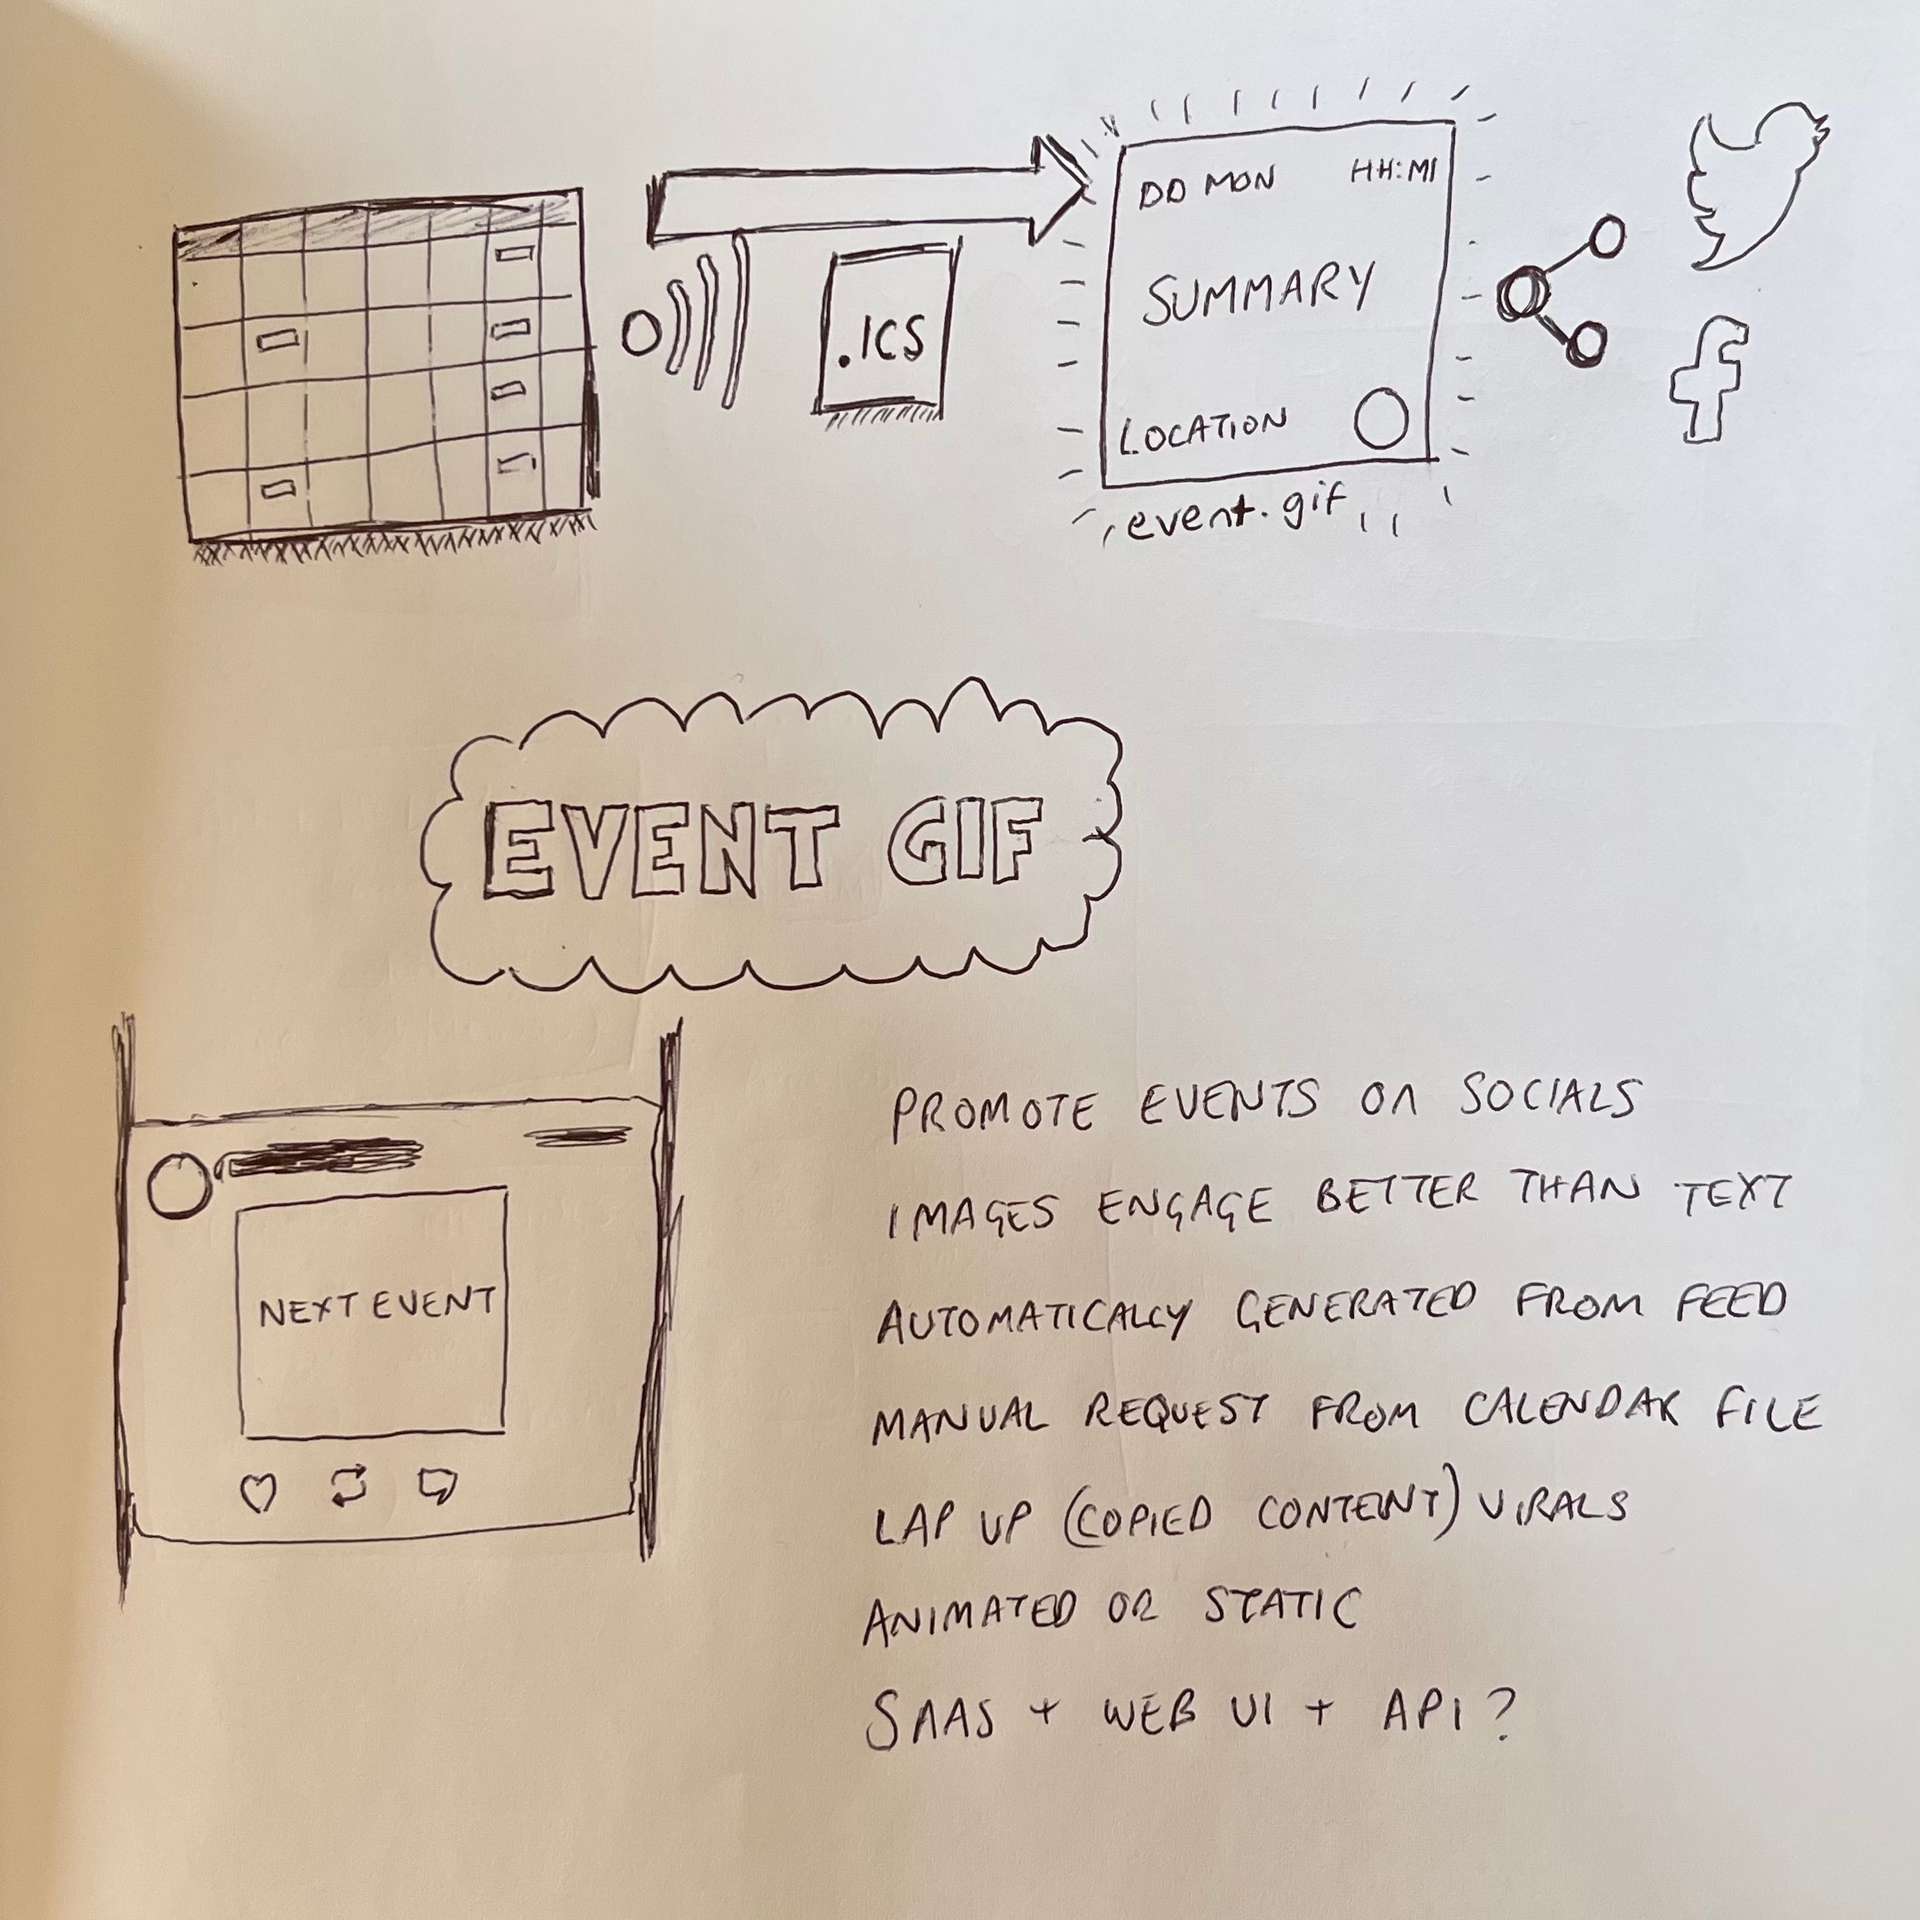 DD MON HH:MI
SUMMARY
.ICS
LOCATION
event.gif
EVENT GIF
NEXT EVENT
PROMOTE EVENTS ON SOCIALS
IMAGES ENGAGE BETTER THAN TEXT
AUTOMATICALLY GENERATED FROM FEED
MANUAL REQUEST FROM CALENDAR FILE
LAP UP (COPIED CONTENT) VIRALS
ANIMATED OR STATIC
SAAS + WEB UI + API?